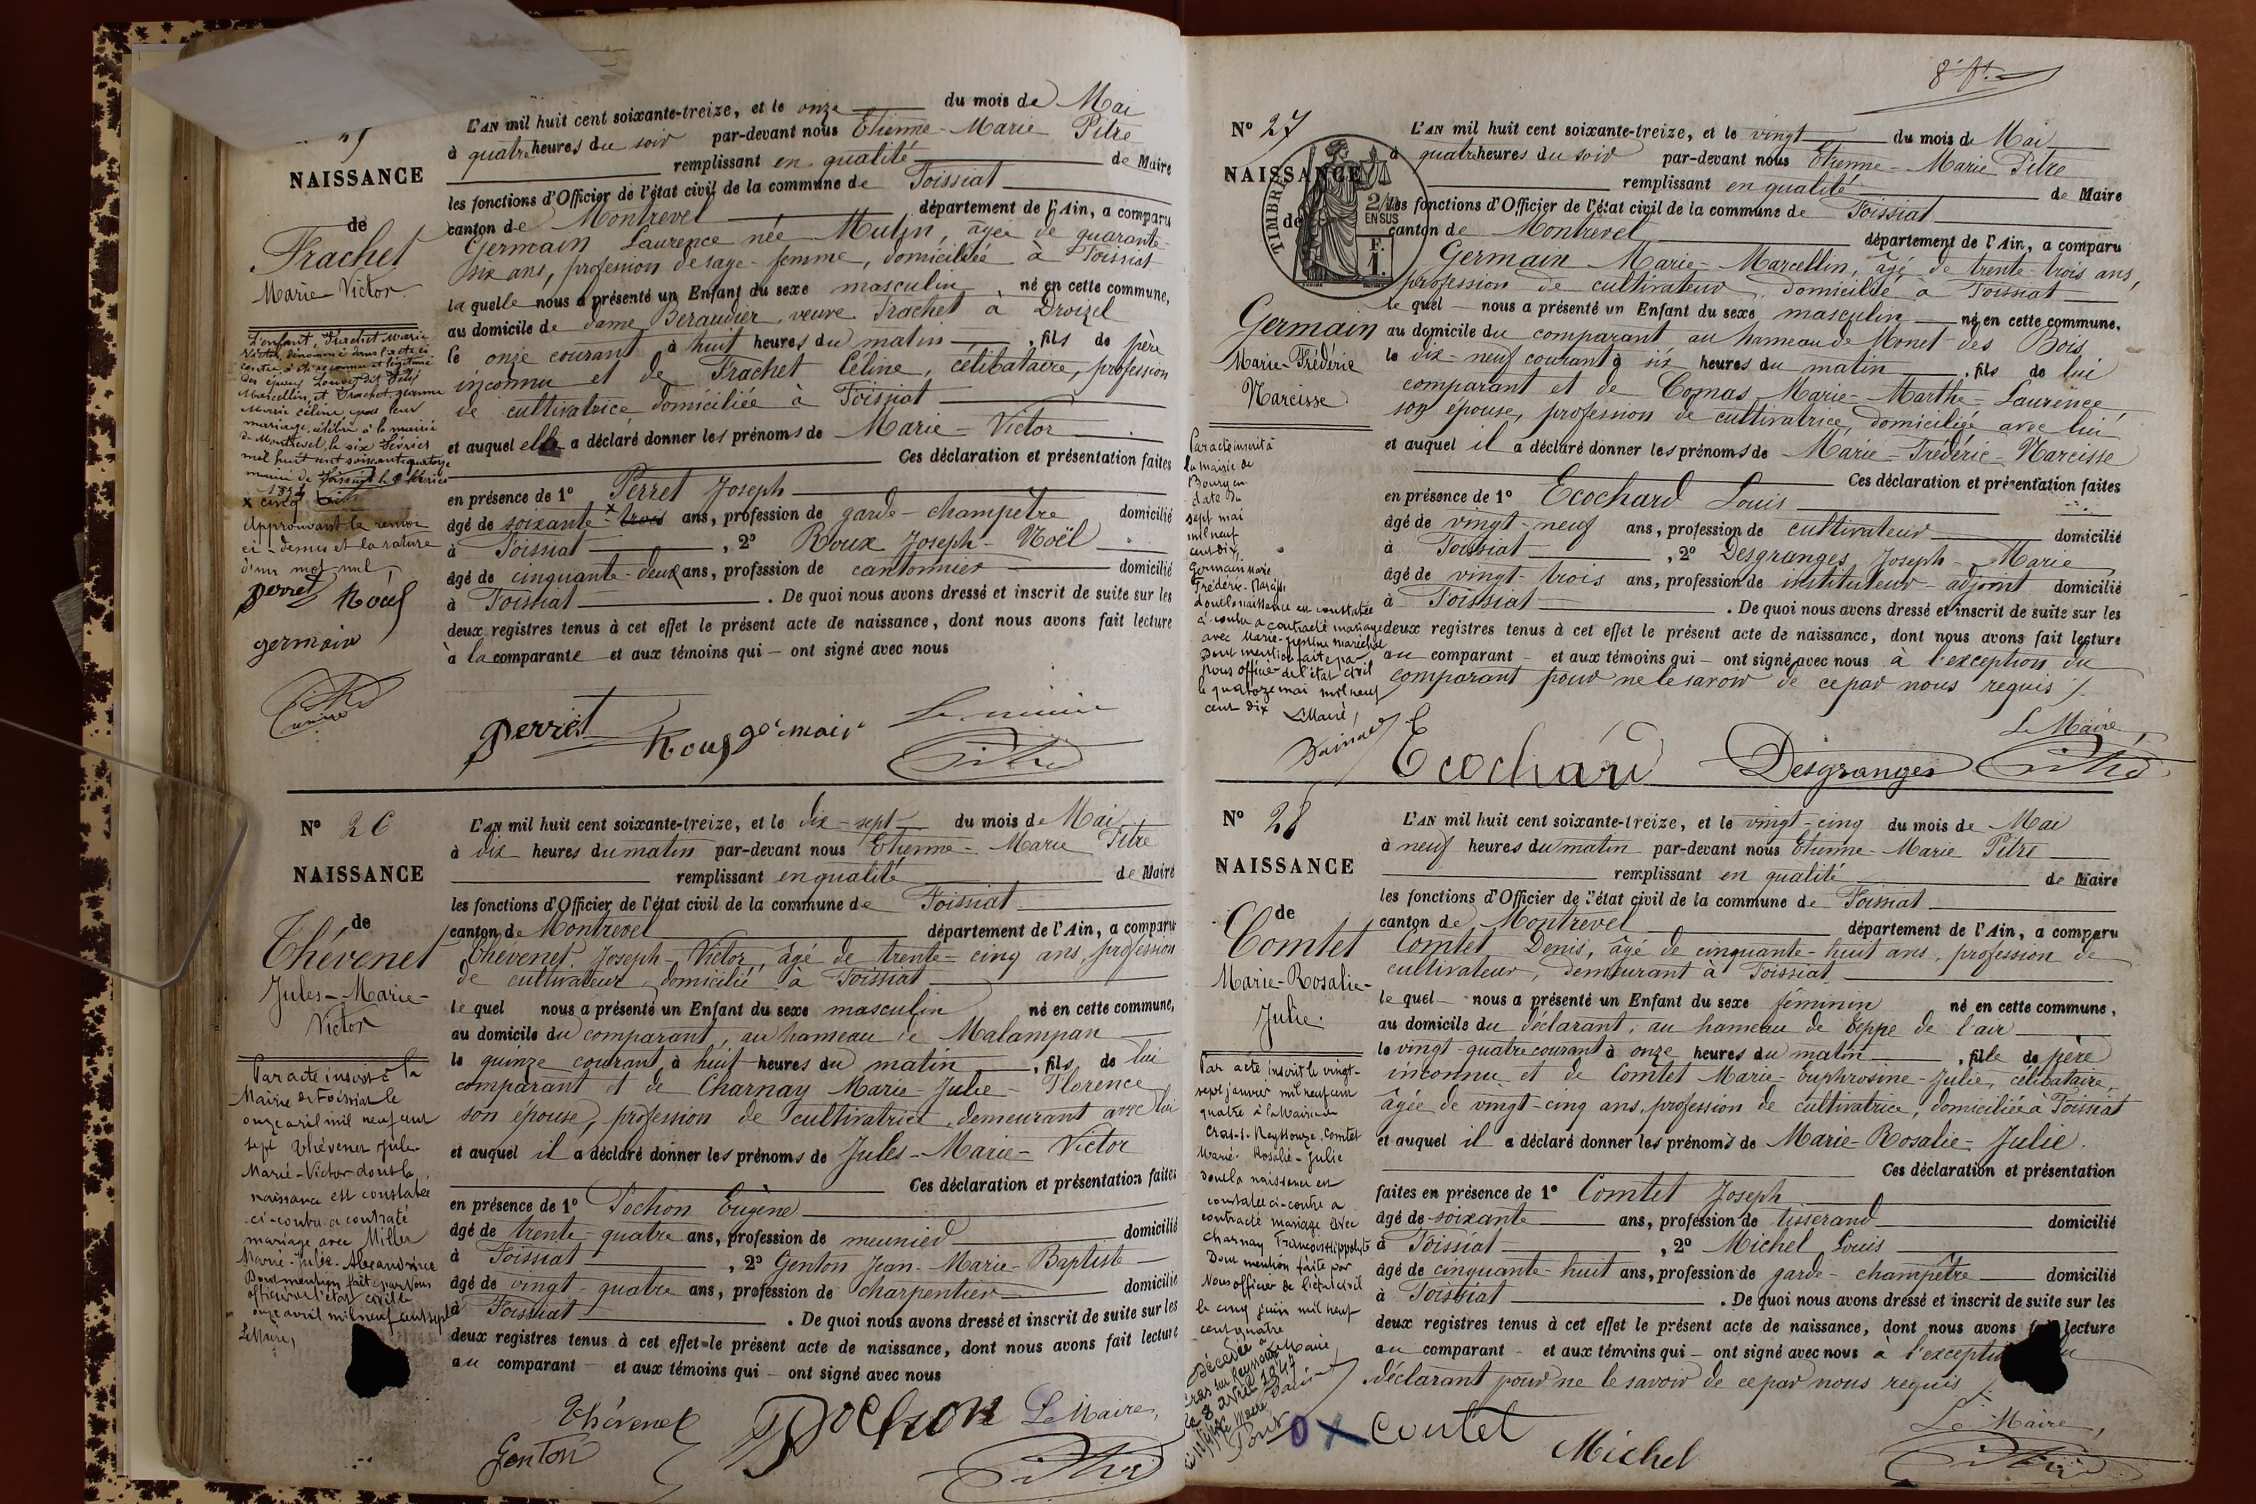 L'AN mil huit cent soixante-treize, et le onze du mois de Mai
à quatre heures du soir par-devant nous Etienne-Marie Pitre
remplissant en qualité de Maire
les fonctions d'Officier de l'état civil de la commune de Foissiat
canton de Montrevel département de l'Ain, a comparu
Germain Laurence née Mulin, agée de quarante-
six ans, profession de sage-femme, domiciliée à Foissiat
la quelle nous a présenté un Enfant du sexe masculin, né en cette commune,
au domicile de dame Beraudier, veuve Frachet à Droizel
le onze courant à huit heures du matin, fils de père
inconnu et de Frachet Céline, célibataire, profession
de cultivatrice domiciliée à Foissiat
et auquel elle a déclaré donner les prénoms de Marie-Victor
Ces déclaration et présentation faites
en présence de 1° Perret Joseph
âgé de soixante-x trois ans, profession de garde-champêtre domicilié
à Foissiat, 2° Roux Joseph-Noël
âgé de cinquante-deux ans, profession de cantonnier domicilié
à Foissiat. De quoi nous avons dressé et inscrit de suite sur les
deux registres tenus à cet effet le présent acte de naissance, dont nous avons fait lecture
à la comparante et aux témoins qui ont signé avec nous
perret Roux germain Le maire
Pitre
NAISSANCE
de
Frachet
Marie Victor
L'enfant, Frachet Marie
Victor, dénommé dans l'acte ci
contre, a été reconnu et légitimé
Marcellin, et Frachet Jeanne
Marie Céline, par leur
mariage, célébré à la mairie
de Montrevel, le six Février
mil huit cent soixante quatorze
1874
x cinq
Approuvant le renvoi
ci-dessus et la rature
d'un mot nul
perret Roux
germain
Pitre
N° 26
NAISSANCE
de
Thévenet
Jules-Marie-
Victor
Par acte inscrit à la
Mairie de Foissiat le
onze avril mil neuf cent
sept Thévenet Jules
Marie-Victor dont la
naissance est constatée
ci-contre a contracté
mariage avec Miller
Marie-Julie-Alexandrine
Dont mention faite par Nous
officier de l'état civil le
onze avril mil neuf cent sept
Le Maire,
L'AN mil huit cent soixante-treize, et le dix-sept du mois de Mai
à dix heures du matin par-devant nous Etienne-Marie Pitre
remplissant en qualité de Maire
les fonctions d'Officier de l'état civil de la commune de Foissiat
canton de Montrevel département de l'Ain, a comparu
Thévenet Joseph-Victor, âgé de trente-cinq ans, profession
de cultivateur, domicilié à Foissiat
le quel nous a présenté un Enfant du sexe masculin né en cette commune,
au domicile du comparant, au hameau de Malampan
le quinze courant à huit heures du matin, fils de lui
comparant et de Charnay Marie-Julie-Florence
son épouse, profession de cultivatrice, demeurant avec lui
et auquel il a déclaré donner les prénoms de Jules-Marie-Victor
Ces déclaration et présentation faites
en présence de 1° Pochon Eugène
âgé de trente-quatre ans, profession de meunier domicilié
à Foissiat, 2° Genton Jean-Marie-Baptiste
âgé de vingt-quatre ans, profession de charpentier domicilié
à Foissiat. De quoi nous avons dressé et inscrit de suite sur les
deux registres tenus à cet effet le présent acte de naissance, dont nous avons fait lecture
au comparant et aux témoins qui ont signé avec nous
Thévenet Pochon Le Maire,
Genton Pitre
8e ft.
N° 27
NAISSANCE
de
TIMBRE
2/10
EN SUS
F.
1.
Germain
Marie-Frédéric
Narcisse
Par acte inscrit à
la mairie de
Bourg en
date du
sept mai
mil neuf
cent dix,
Germain Marie
Frédéric-Narcisse
dont la naissance est constatée
ci-contre a contracté mariage
avec Marie-Justine Maréchal
Dont mention faite par
Nous officier de l'état civil
le quatorze mai mil neuf
cent dix Le Maire,
L'AN mil huit cent soixante-treize, et le vingt du mois de Mai
à quatre heures du soir par-devant nous Etienne-Marie Pitre
remplissant en qualité de Maire
les fonctions d'Officier de l'état civil de la commune de Foissiat
canton de Montrevel département de l'Ain, a comparu
Germain Marie-Marcellin, âgé de trente-trois ans,
profession de cultivateur domicilié à Foissiat
le quel nous a présenté un Enfant du sexe masculin né en cette commune,
au domicile du comparant au hameau de Monet-des Bois
le dix-neuf courant à six heures du matin, fils de lui
comparant et de Comas Marie-Marthe-Laurence
son épouse, profession de cultivatrice, domiciliée avec lui
et auquel il a déclaré donner les prénoms de Marie-Frédéric-Narcisse
Ces déclaration et présentation faites
en présence de 1° Ecochard Louis
âgé de vingt-neuf ans, profession de cultivateur domicilié
à Foissiat, 2° Desgranges Joseph-Marie
âgé de vingt-trois ans, profession de instituteur-adjoint domicilié
à Foissiat. De quoi nous avons dressé et inscrit de suite sur les
deux registres tenus à cet effet le présent acte de naissance, dont nous avons fait lecture
au comparant et aux témoins qui ont signé avec nous à l'exception du
comparant pour ne le savoir de ce par nous requis
Le Maire,
Ecochard Desgranges Pitre
N° 28
NAISSANCE
de
Comtet
Marie-Rosalie-
Julie
Par acte inscrit le vingt-
sept janvier mil neuf cent
quatre à la Mairie de
Cras-s-Reyssouze, Comtet
Marie-Rosalie-Julie
dont la naissance est
constatée ci-contre a
contracté mariage avec
Charnay François Hippolyte
Dont mention faite par
Nous officier de l'état civil
le cinq juin mil neuf
cent quatre
Le Maire,
Décédée à
Cras sur Reyssouze
le 8 avril 1947
Le Maire
L'AN mil huit cent soixante-treize, et le vingt-cinq du mois de Mai
à neuf heures du matin par-devant nous Etienne-Marie Pitre
remplissant en qualité de Maire
les fonctions d'Officier de l'état civil de la commune de Foissiat
canton de Montrevel département de l'Ain, a comparu
Comtet Denis, âgé de cinquante-huit ans, profession de
cultivateur, demeurant à Foissiat
le quel nous a présenté un Enfant du sexe féminin né en cette commune,
au domicile du déclarant, au hameau de Teppe de l'air
le vingt-quatre courant à onze heures du matin, fille de père
inconnu et de Comtet Marie-Euphrosine-Julie, célibataire,
âgée de vingt-cinq ans, profession de cultivatrice, domiciliée à Foissiat
et auquel il a déclaré donner les prénoms de Marie-Rosalie-Julie.
Ces déclaration et présentation
faites en présence de 1° Comtet Joseph
âgé de soixante ans, profession de tisserand domicilié
à Foissiat, 2° Michel Louis
âgé de cinquante-huit ans, profession de garde-champêtre domicilié
à Foissiat. De quoi nous avons dressé et inscrit de suite sur les
deux registres tenus à cet effet le présent acte de naissance, dont nous avons lecture
au comparant et aux témoins qui ont signé avec nous à l'exception
déclarant pour ne le savoir de ce par nous requis
Le Maire,
ox contet Michel Pitre